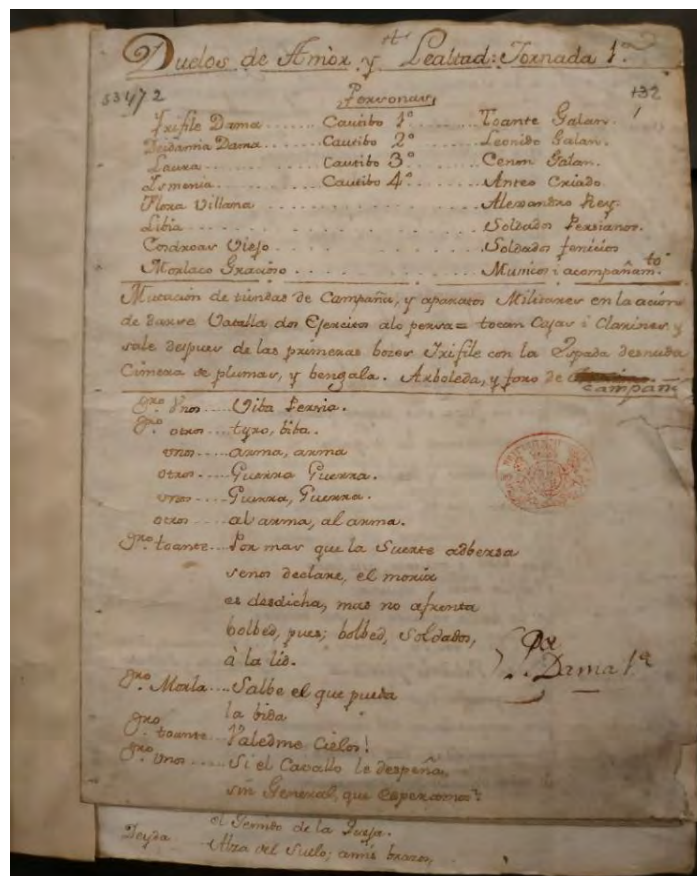 Duelos de Amor y Lealtad: Jornada 1ª
53472
132
1
Personas,
Irifile Dama ...... Cautibo 1º ..... Toante Galan.
Deidamia Dama ...... Cautibo 2º ..... Leonido Galan.
Laura ...... Cautibo 3º ..... Cenon Galan.
Ismenia ...... Cautibo 4º ..... Anteo Criado.
Flora Villana ...... Alexandro Rey.
Libia ...... Soldados Persianos.
Cosdroas Viejo ...... Soldados fenicios
Morlaco Gracioso ...... Musicos i acompañam.to
Mutacion de tiendas de Campaña, y aparatos Militares en la acion
de darse Vatalla dos Exercitos a lo persa = tocan Cajas i Clarines y
sale despues de las primeras bozes Irifile con la Espada desnuda
Cimera de plumas, y bengala. Arboleda, y foro de Campañ
Unos ... Viba Persia.
otros ... tyro, biba.
unos ... arma, arma
otros ... Guerra Guerra.
unos ... Guerra, Guerra.
otros ... al arma, al arma.
toante ... Por mas que la Suerte adbersa
senos declare, el morir
es desdicha, mas no afrenta
bolbed, pues; bolbed, Soldados,
à la lid.
Dama 1ª
Morla ... Salbe el que pueda
la bida
toante ... Valedme Cielos!
Unos ... Si el Cavallo le despeña
sin General, que esperamos?
de la
Deyda Alza del Suelo; a mis brazos,